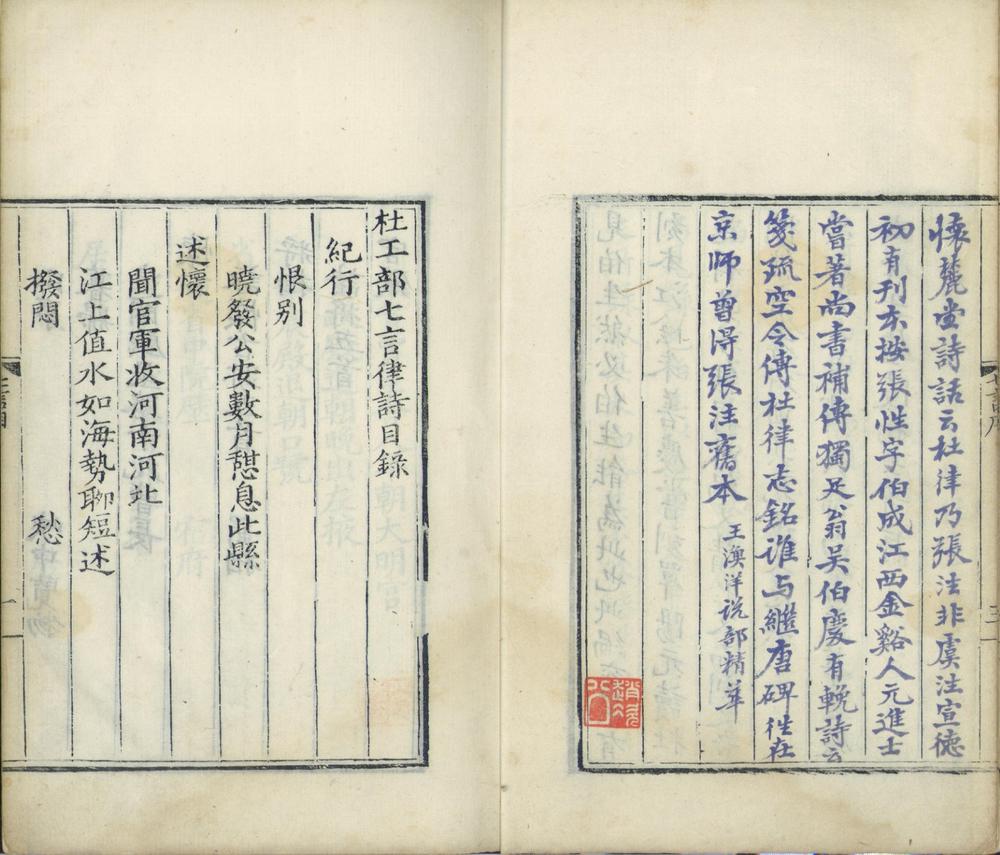 懷麓堂詩話云杜律乃張注非虞注宣德
初有刊本按張性字伯成江西金谿人元進士
嘗著尚書補傳獨足翁吳伯慶有輓詩云
箋疏空令傳杜律志銘誰与繼唐碑往在
京師曾得張注舊本
王漁洋說部精華
杜工部七言律詩目錄
紀行
恨別
曉發公安數月憩息此縣
述懷
聞官軍收河南河北
江上值水如海勢聊短述
撥悶 愁